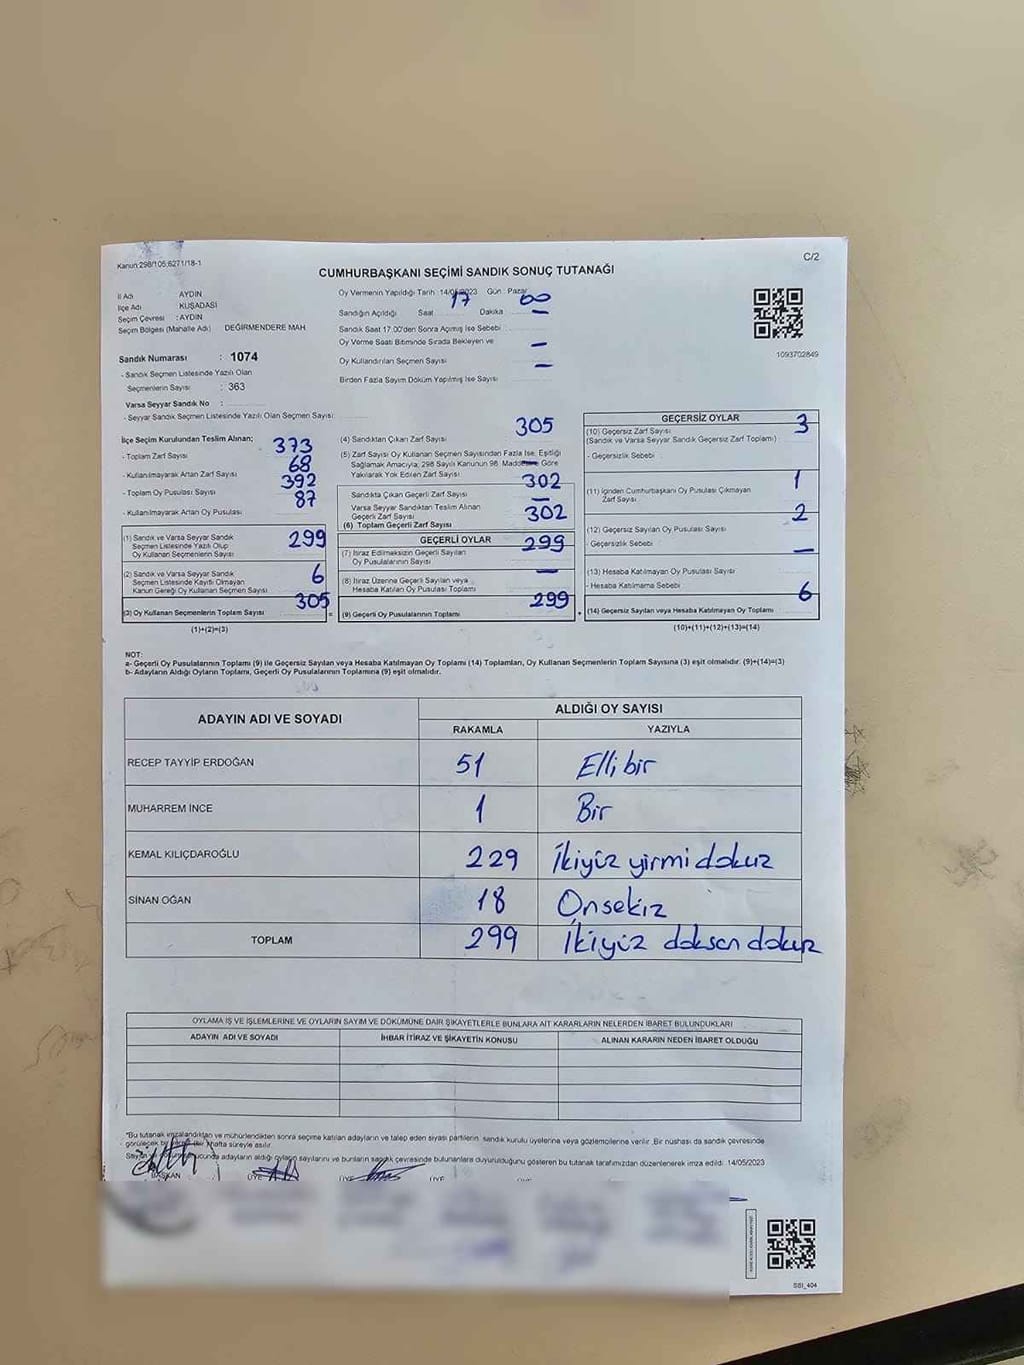 Kanun:298/105;6271/18-1
C/2
CUMHURBAŞKANI SEÇİMİ SANDIK SONUÇ TUTANAĞI
İl Adı : AYDIN
İlçe Adı : KUŞADASI
Seçim Çevresi : AYDIN
Seçim Bölgesi (Mahalle Adı) DEĞİRMENDERE MAH
Sandık Numarası : 1074
- Sandık Seçmen Listesinde Yazılı Olan
Seçmenlerin Sayısı : 363
Varsa Seyyar Sandık No :
- Seyyar Sandık Seçmen Listesinde Yazılı Olan Seçmen Sayısı:
Oy Vermenin Yapıldığı Tarih :14/05/2023 Gün : Pazar
Sandığın Açıldığı Saat 17 Dakika 00
Sandık Saat 17:00'den Sonra Açımış İse Sebebi : —
Oy Verme Saati Bitiminde Sırada Bekleyen ve
Oy Kullandırılan Seçmen Sayısı —
Birden Fazla Sayım Döküm Yapılmış İse Sayısı —
1093702849
İlçe Seçim Kurulundan Teslim Alınan;
- Toplam Zarf Sayısı 373
- Kullanılmayarak Artan Zarf Sayısı 68
- Toplam Oy Pusulası Sayısı 392
- Kullanılmayarak Artan Oy Pusulası 87
(1) Sandık ve Varsa Seyyar Sandık
Seçmen Listesinde Yazılı Olup
Oy Kullanan Seçmenlerin Sayısı 299
(2) Sandık ve Varsa Seyyar Sandık
Seçmen Listesinde Kayıtlı Olmayan
Kanun Gereği Oy Kullanan Seçmen Sayısı 6
(3) Oy Kullanan Seçmenlerin Toplam Sayısı 305
(1)+(2)=(3)
(4) Sandıktan Çıkan Zarf Sayısı 305
(5) Zarf Sayısı Oy Kullanan Seçmen Sayısından Fazla İse, Eşitliği
Sağlamak Amacıyla, 298 Sayılı Kanunun 98. Maddesine Göre
Yakılarak Yok Edilen Zarf Sayısı —
Sandıkta Çıkan Geçerli Zarf Sayısı 302
Varsa Seyyar Sandıktan Teslim Alınan
Geçerli Zarf Sayısı —
(6) Toplam Geçerli Zarf Sayısı 302
GEÇERLİ OYLAR
(7) İtiraz Edilmeksizin Geçerli Sayılan
Oy Pusulalarının Sayısı 299
(8) İtiraz Üzerine Geçerli Sayılan veya
Hesaba Katılan Oy Pusulası Toplamı —
= (9) Geçerli Oy Pusulalarının Toplamı 299
GEÇERSİZ OYLAR
(10) Geçersiz Zarf Sayısı 3
(Sandık ve Varsa Seyyar Sandık Geçersiz Zarf Toplamı)
- Geçersizlik Sebebi :
(11) İçinden Cumhurbaşkanı Oy Pusulası Çıkmayan
Zarf Sayısı 1
(12) Geçersiz Sayılan Oy Pusulası Sayısı 2
- Geçersizlik Sebebi :
(13) Hesaba Katılmayan Oy Pusulası Sayısı —
- Hesaba Katılmama Sebebi
+ (14) Geçersiz Sayılan veya Hesaba Katılmayan Oy Toplamı 6
(10)+(11)+(12)+(13)=(14)
NOT:
a- Geçerli Oy Pusulalarının Toplamı (9) ile Geçersiz Sayılan veya Hesaba Katılmayan Oy Toplamı (14) Toplamları, Oy Kullanan Seçmenlerin Toplam Sayısına (3) eşit olmalıdır. (9)+(14)=(3)
b- Adayların Aldığı Oyların Toplamı, Geçerli Oy Pusulalarının Toplamına (9) eşit olmalıdır.
ADAYIN ADI VE SOYADI ALDIĞI OY SAYISI
RAKAMLA YAZIYLA
RECEP TAYYİP ERDOĞAN 51 Elli bir
MUHARREM İNCE 1 Bir
KEMAL KILIÇDAROĞLU 229 İkiyüz yirmi dokuz
SİNAN OĞAN 18 Onsekiz
TOPLAM 299 İkiyüz doksan dokuz
OYLAMA İŞ VE İŞLEMLERİNE VE OYLARIN SAYIM VE DÖKÜMÜNE DAİR ŞİKAYETLERLE BUNLARA AİT KARARLARIN NELERDEN İBARET BULUNDUKLARI
ADAYIN ADI VE SOYADI İHBAR İTİRAZ VE ŞİKAYETİN KONUSU ALINAN KARARIN NEDEN İBARET OLDUĞU
*Bu tutanak imzalandıktan ve mühürlendikten sonra seçime katılan adayların ve talep eden siyasi partilerin sandık kurulu üyelerine veya gözlemcilerine verilir. Bir nüshası da sandık çevresinde
görülecek bir yere bir hafta süreyle asılır.
adayların aldığı oyların sayılarını ve bunların sandık çevresinde bulunanlara duyurulduğunu gösteren bu tutanak tarafımızdan düzenlenerek imza edildi. 14/05/2023
BAŞKAN ÜYE ÜYE ÜYE
SSI_404